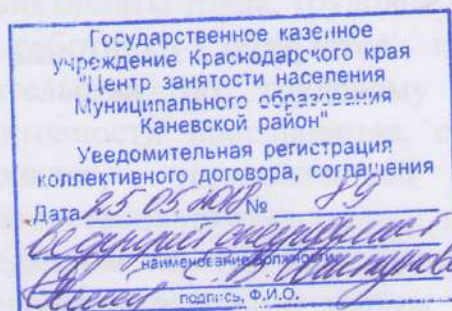 Государственное казенное
учреждение Краснодарского края
"Центр занятости населения
Муниципального образования
Каневской район"
Уведомительная регистрация
коллективного договора, соглашения
Дата 25.05.2018 № 89
ведущий специалист
наименование должности
С. В.
подпись, Ф.И.О.